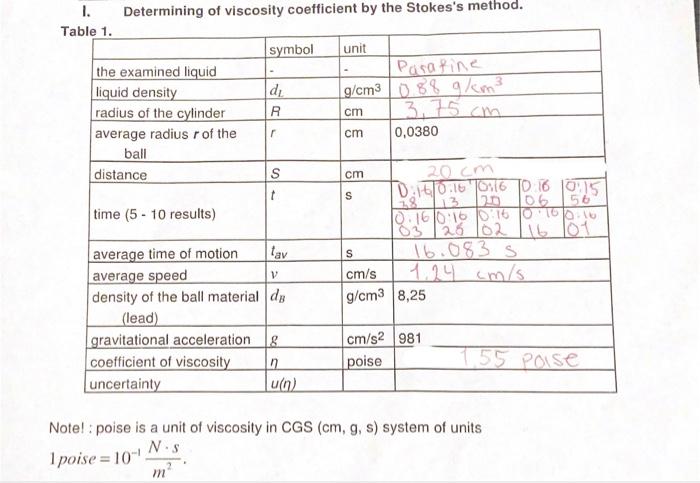 I. Determining of viscosity coefficient by the Stokes's method.
Table 1.
symbol unit
the examined liquid - - Parafine
liquid density d_L g/cm3 0.88 g/cm³
radius of the cylinder R cm 3,75 cm
average radius r of the ball r cm 0,0380
distance S cm 20 cm
time (5 - 10 results) t s
0:16 0:16 0:16 0:16 0:15
38 13 20 06 56
0:16 0:16 0:16 0:16 0:16
03 26 02 16 01
average time of motion t_av s 16.083 s
average speed v cm/s 1.24 cm/s
density of the ball material (lead) d_B g/cm3 8,25
gravitational acceleration g cm/s2 981
coefficient of viscosity η poise 1,55 poise
uncertainty u(η)
Note! : poise is a unit of viscosity in CGS (cm, g, s) system of units
1 poise = 10⁻¹ N · s / m².